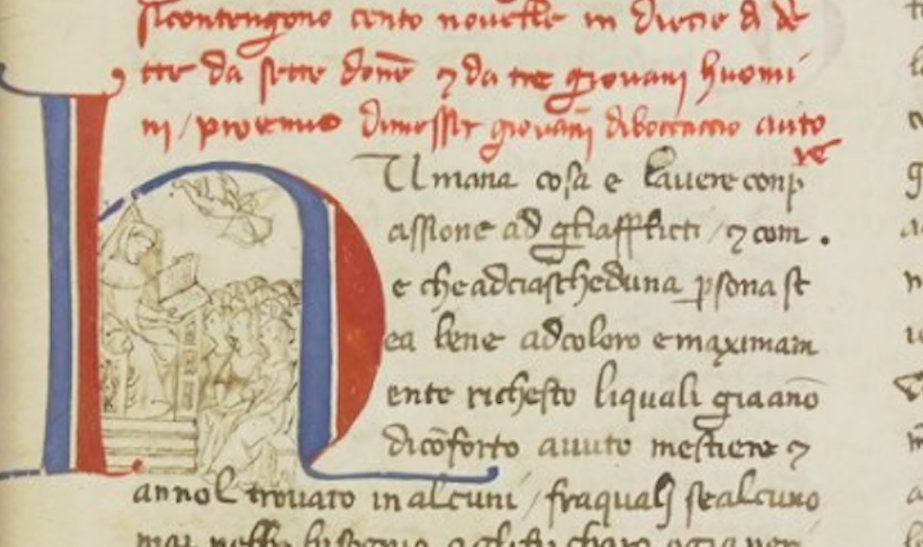 sicontengono cento novelle in diece dì de
tte da sette donē ⁊ da tre giovani huomi
ni / proemio dimesser giovāni diboccaccio auto
re
hUmana cosa e lavere conp
assione ad gliafflicti / ⁊ com .
e cheadciascheduna ꝑsona st
ea bene adcoloro emaximam
ente richesto liquali giaano
dicōforto avuto mestiere ⁊
annol trovato in alcuni / fraquali sealcuno
mai